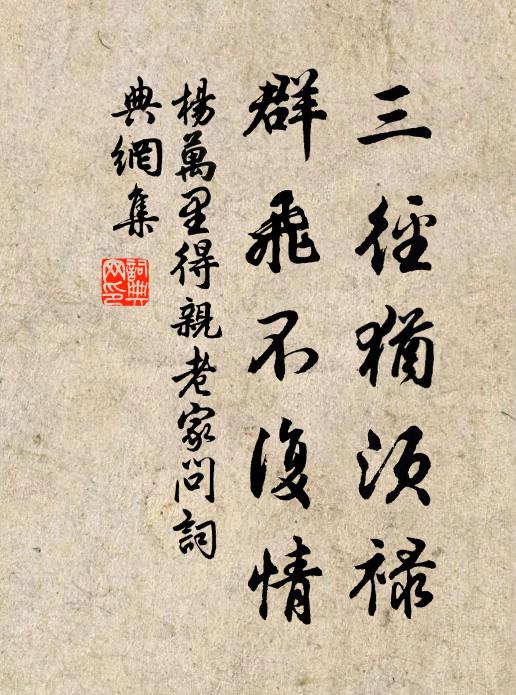 三徑猶須祿
群飛不復情
楊萬里得親老家問詞
典網集
詞典
网印